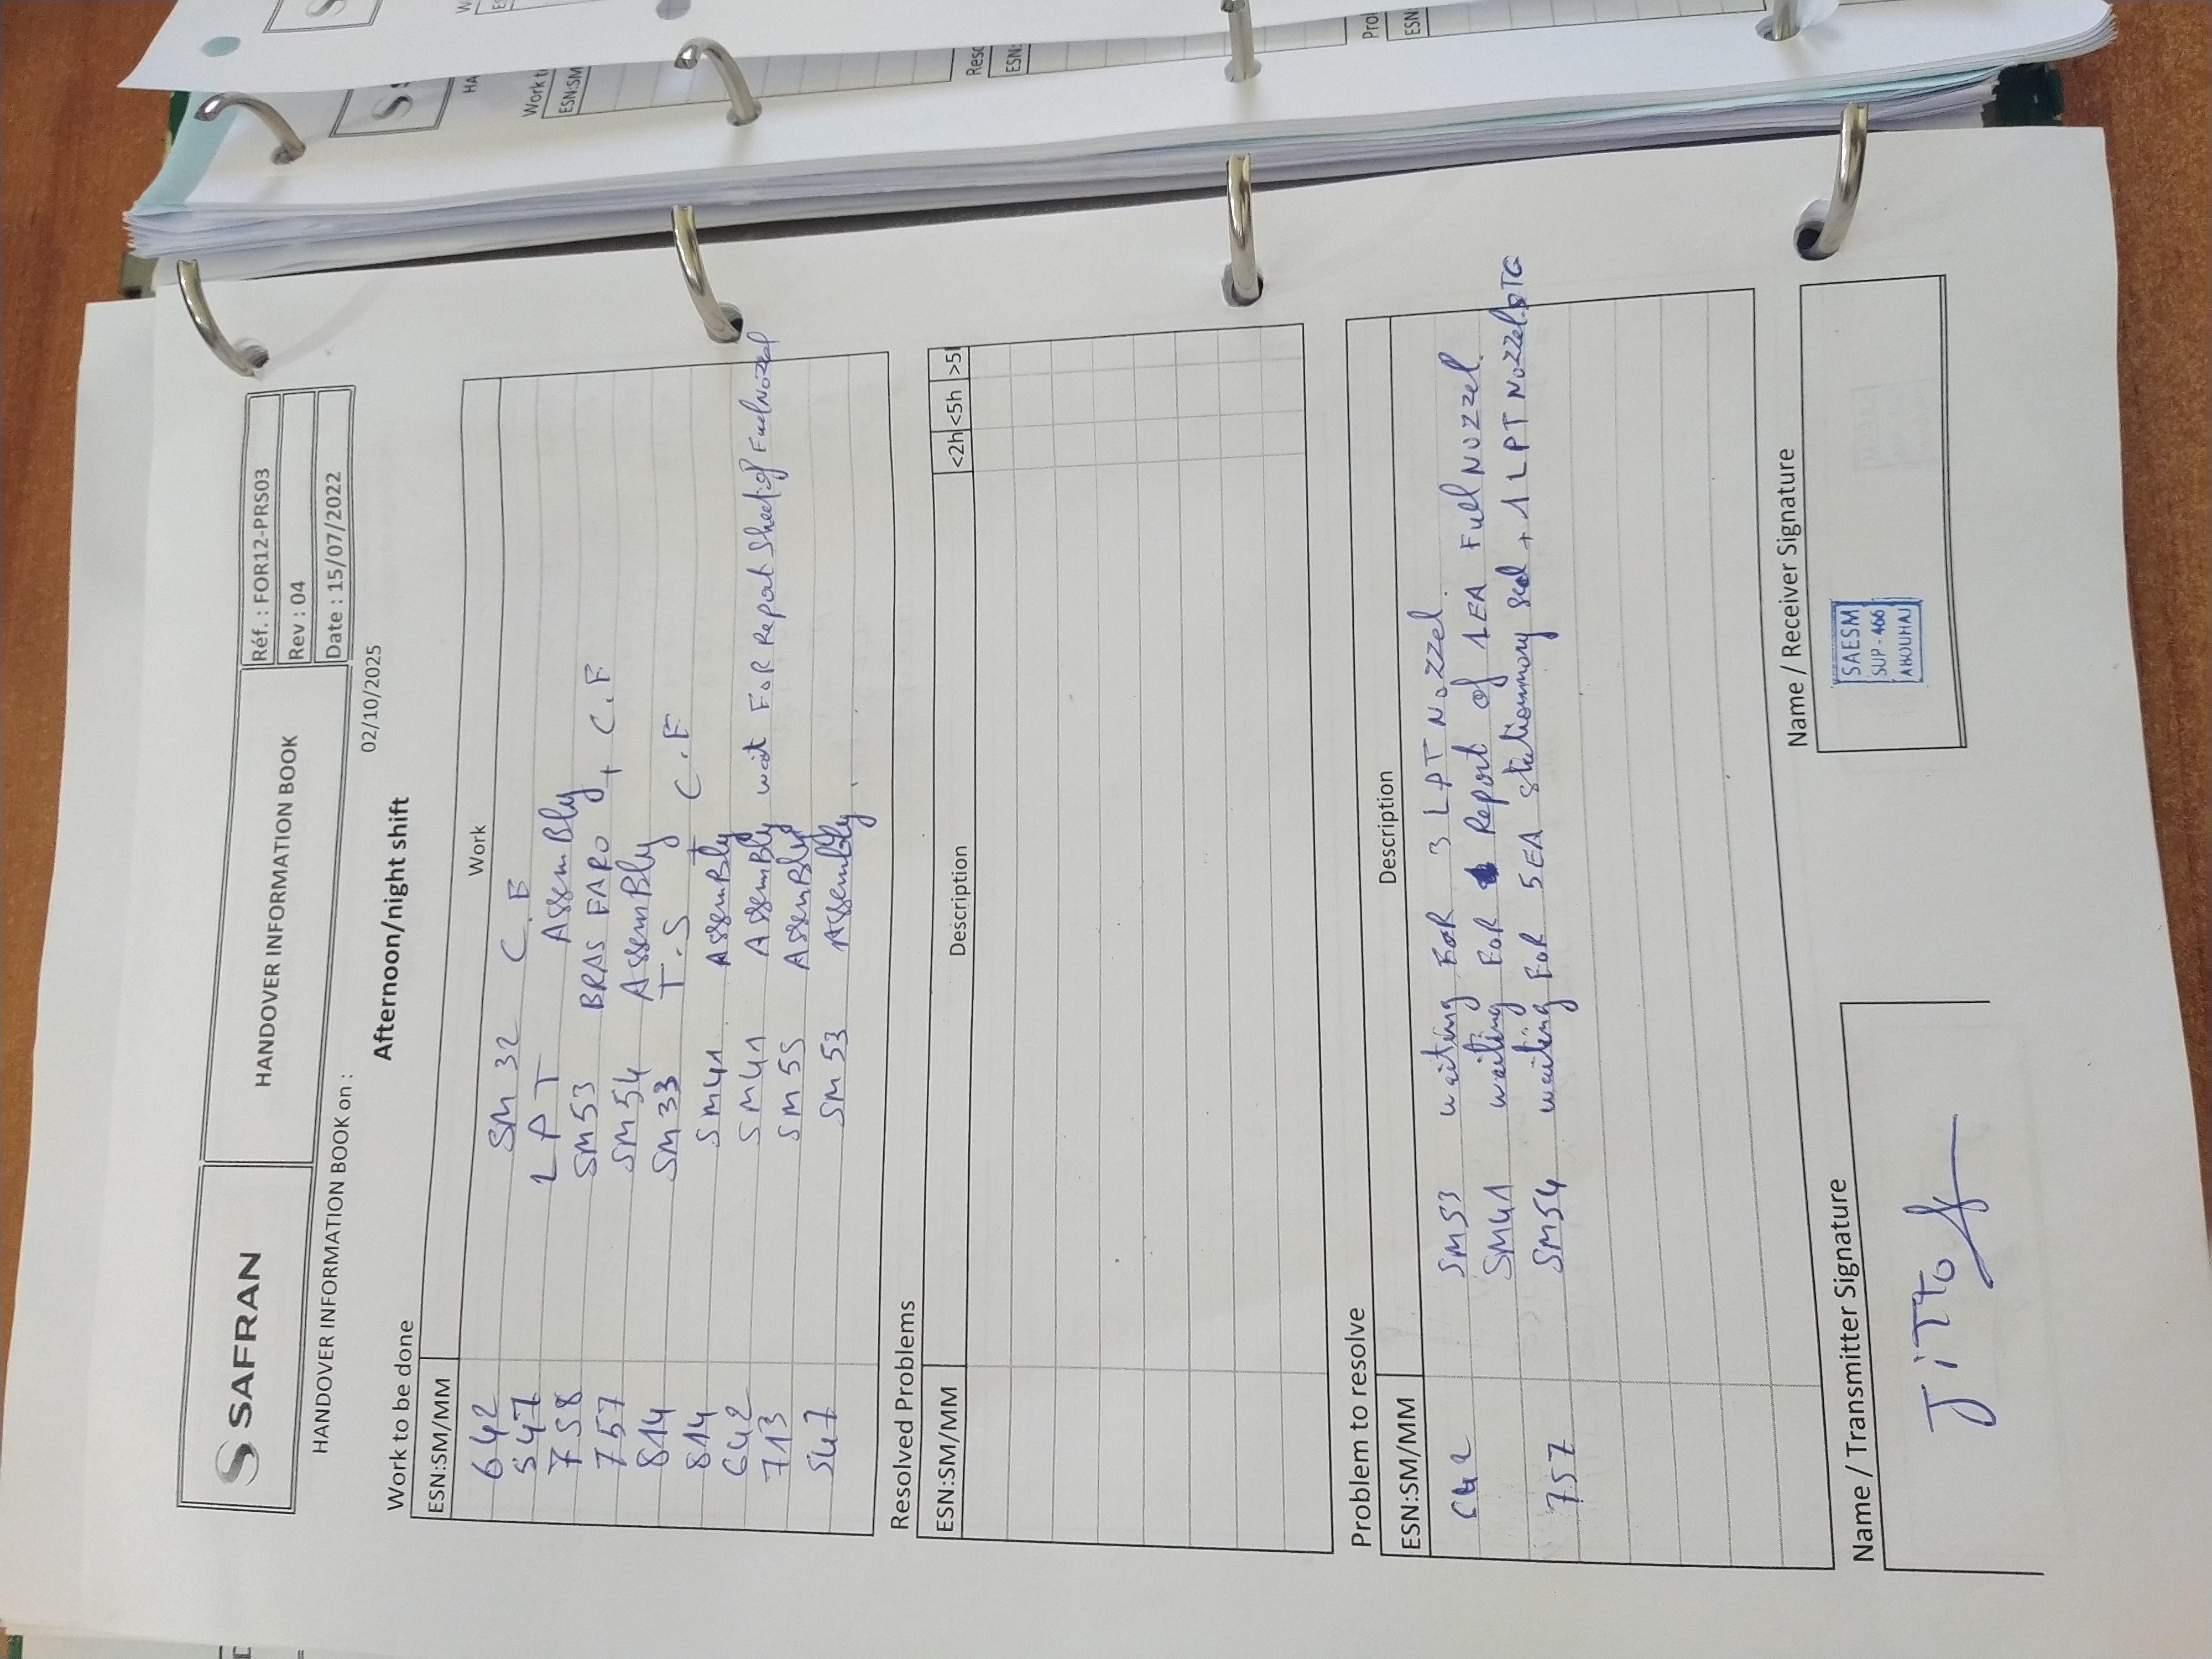 SAFRAN
HANDOVER INFORMATION BOOK
Réf. : FOR12-PRS03
Rev : 04
Date : 15/07/2022
HANDOVER INFORMATION BOOK on :
02/10/2025
Afternoon/night shift
Work to be done
ESN:SM/MM Work
642 SM 32 C.E
547 LPT AssemBly
758 SM53 BRAS FARO + C.F
757 SM54 AssemBly
814 SM33 T.S + C.F
814 SM41 AssemBly
642 SM41 AssemBly wait FoR Report Sheet of Fuel Nozzel
713 SM55 AssemBly
547 SM 53 Assembly.
Resolved Problems
ESN:SM/MM Description <2h <5h >5
Problem to resolve
ESN:SM/MM Description
642 SM53 waiting FoR 3 LPT Nozzel.
SM41 waiting FoR Report of 1EA Fuel Nozzel.
757 SM54 waiting FoR 5EA stationnary seal + 1 LPT Nozzel STG
Name / Transmitter Signature
JiTTo
Name / Receiver Signature
SAESM
SUP - 466
ABOUHAJ
Work t
ESN:SM
Reso
ESN:
ESN